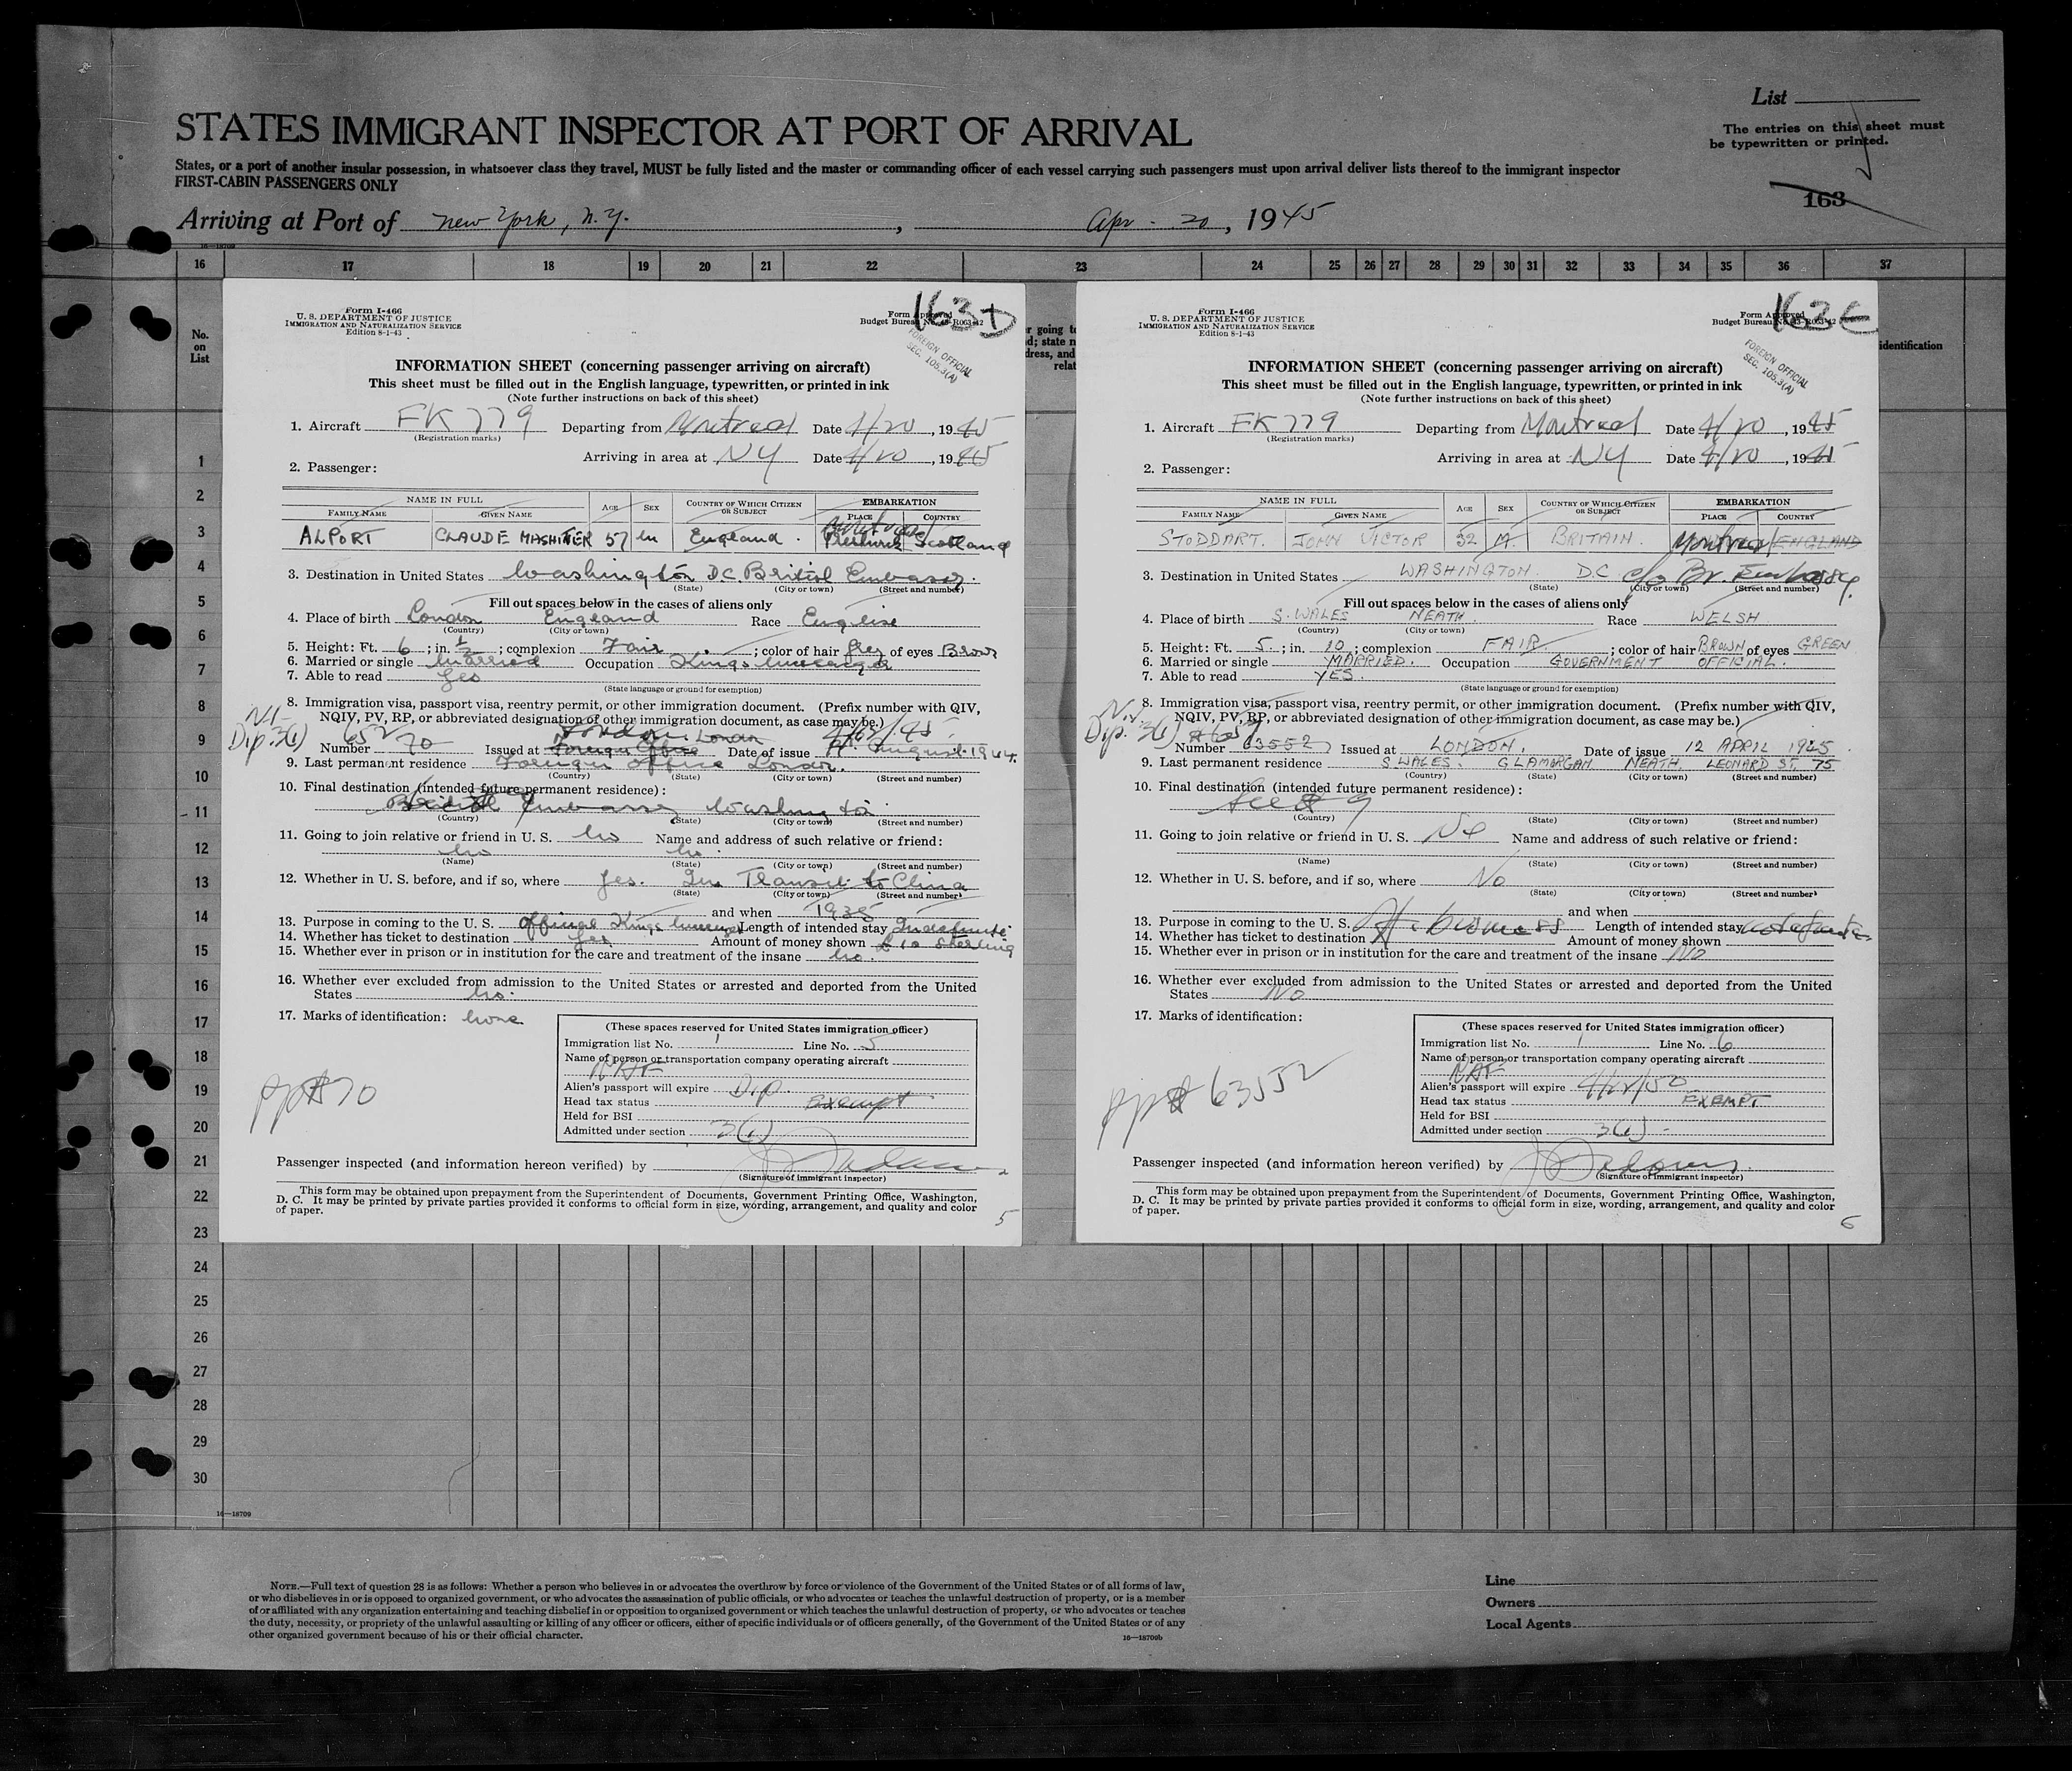 List
STATES IMMIGRANT INSPECTOR AT PORT OF ARRIVAL
The entries on this sheet must
be typewritten or printed.
States, or a port of another insular possession, in whatsoever class they travel, MUST be fully listed and the master or commanding officer of each vessel carrying such passengers must upon arrival deliver lists thereof to the immigrant inspector
FIRST-CABIN PASSENGERS ONLY
163
Arriving at Port of New York, N.Y. , Apr. 20, 1945
16—18709
16 17 18 19 20 21 22 23 24 25 26 27 28 29 30 31 32 33 34 35 36 37
No.
on
List
1
2
3
4
5
6
7
8
9
10
11
12
13
14
15
16
17
18
19
20
21
22
23
24
25
26
27
28
29
30
16—18709
163 D
Form I-466
U. S. DEPARTMENT OF JUSTICE
IMMIGRATION AND NATURALIZATION SERVICE
Edition 8-1-43
Form Approved
Budget Bureau No. 43-R063-42
FOREIGN OFFICIAL
SEC. 105.3(A)
INFORMATION SHEET (concerning passenger arriving on aircraft)
This sheet must be filled out in the English language, typewritten, or printed in ink
(Note further instructions on back of this sheet)
1. Aircraft FK 779 Departing from Montreal Date 4/20, 1945
(Registration marks)
Arriving in area at NY Date 4/20, 1945
2. Passenger:
NAME IN FULL AGE SEX COUNTRY OF WHICH CITIZEN OR SUBJECT EMBARKATION
FAMILY NAME GIVEN NAME PLACE COUNTRY
Montreal
ALPORT CLAUDE MASHITER 57 M England. Scotland
3. Destination in United States Washington D.C. British Embassy.
(State) (City or town) (Street and number)
Fill out spaces below in the cases of aliens only
4. Place of birth London England Race English
(Country) (City or town)
5. Height: Ft. 6; in. ½; complexion Fair; color of hair Grey of eyes Brown
6. Married or single Married Occupation Kings Messenger
7. Able to read Yes
(State language or ground for exemption)
8. Immigration visa, passport visa, reentry permit, or other immigration document. (Prefix number with QIV,
NQIV, PV, RP, or abbreviated designation of other immigration document, as case may be.)
Dip. 3(1)
London
Number 70 Issued at Foreign Office London Date of issue August 1944.
9. Last permanent residence Foreign Office London.
(Country) (State) (City or town) (Street and number)
10. Final destination (intended future permanent residence):
British Embassy Washington
(Country) (State) (City or town) (Street and number)
11. Going to join relative or friend in U. S. No Name and address of such relative or friend:
No No.
(Name) (State) (City or town) (Street and number)
12. Whether in U. S. before, and if so, where Yes. In Transit to China
(State) (City or town) (Street and number)
and when 1935
13. Purpose in coming to the U. S. Official Kings Messenger Length of intended stay Indefinite
14. Whether has ticket to destination Yes Amount of money shown £10 Sterling
15. Whether ever in prison or in institution for the care and treatment of the insane No.
16. Whether ever excluded from admission to the United States or arrested and deported from the United
States No.
17. Marks of identification: None
pp# 70
(These spaces reserved for United States immigration officer)
Immigration list No. 1 Line No. 5
Name of person or transportation company operating aircraft
RAF
Alien's passport will expire Dip.
Head tax status Exempt
Held for BSI
Admitted under section 3(1)
Passenger inspected (and information hereon verified) by
(Signature of immigrant inspector)
This form may be obtained upon prepayment from the Superintendent of Documents, Government Printing Office, Washington,
D. C. It may be printed by private parties provided it conforms to official form in size, wording, arrangement, and quality and color
of paper.
5
163 E
Form I-466
U. S. DEPARTMENT OF JUSTICE
IMMIGRATION AND NATURALIZATION SERVICE
Edition 8-1-43
Form Approved
Budget Bureau No. 43-R063-42
FOREIGN OFFICIAL
SEC. 105.3(A)
identification
INFORMATION SHEET (concerning passenger arriving on aircraft)
This sheet must be filled out in the English language, typewritten, or printed in ink
(Note further instructions on back of this sheet)
1. Aircraft FK 779 Departing from Montreal Date 4/20, 1945
(Registration marks)
Arriving in area at NY Date 4/20, 1945
2. Passenger:
NAME IN FULL AGE SEX COUNTRY OF WHICH CITIZEN OR SUBJECT EMBARKATION
FAMILY NAME GIVEN NAME PLACE COUNTRY
STODDART. JOHN VICTOR 32 M. BRITAIN. Montreal ENGLAND
3. Destination in United States WASHINGTON D.C c/o Br. Embassy.
(State) (City or town) (Street and number)
Fill out spaces below in the cases of aliens only
4. Place of birth S. WALES NEATH. Race WELSH
(Country) (City or town)
5. Height: Ft. 5.; in. 10; complexion FAIR; color of hair BROWN of eyes GREEN
6. Married or single MARRIED. Occupation GOVERNMENT OFFICIAL.
7. Able to read YES.
(State language or ground for exemption)
8. Immigration visa, passport visa, reentry permit, or other immigration document. (Prefix number with QIV,
NQIV, PV, RP, or abbreviated designation of other immigration document, as case may be.)
Dip. 3(1)
Number 63552 Issued at LONDON. Date of issue 12 APRIL 1945.
9. Last permanent residence S. WALES. GLAMORGAN NEATH. LEONARD ST. 75
(Country) (State) (City or town) (Street and number)
10. Final destination (intended future permanent residence):
See # 9
(Country) (State) (City or town) (Street and number)
11. Going to join relative or friend in U. S. No Name and address of such relative or friend:
(Name) (State) (City or town) (Street and number)
12. Whether in U. S. before, and if so, where No
(State) (City or town) (Street and number)
and when
13. Purpose in coming to the U. S. business Length of intended stay
14. Whether has ticket to destination Amount of money shown
15. Whether ever in prison or in institution for the care and treatment of the insane No
16. Whether ever excluded from admission to the United States or arrested and deported from the United
States No
17. Marks of identification:
pp# 63552
(These spaces reserved for United States immigration officer)
Immigration list No. 1 Line No. 6
Name of person or transportation company operating aircraft
RAF
Alien's passport will expire 4/12/50
Head tax status EXEMPT
Held for BSI
Admitted under section 3(1)
Passenger inspected (and information hereon verified) by
(Signature of immigrant inspector)
This form may be obtained upon prepayment from the Superintendent of Documents, Government Printing Office, Washington,
D. C. It may be printed by private parties provided it conforms to official form in size, wording, arrangement, and quality and color
of paper.
6
NOTE.—Full text of question 28 is as follows: Whether a person who believes in or advocates the overthrow by force or violence of the Government of the United States or of all forms of law,
or who disbelieves in or is opposed to organized government, or who advocates the assassination of public officials, or who advocates or teaches the unlawful destruction of property, or is a member
of or affiliated with any organization entertaining and teaching disbelief in or opposition to organized government or which teaches the unlawful destruction of property, or who advocates or teaches
the duty, necessity, or propriety of the unlawful assaulting or killing of any officer or officers, either of specific individuals or of officers generally, of the Government of the United States or of any
other organized government because of his or their official character.
16—18709b
Line
Owners
Local Agents